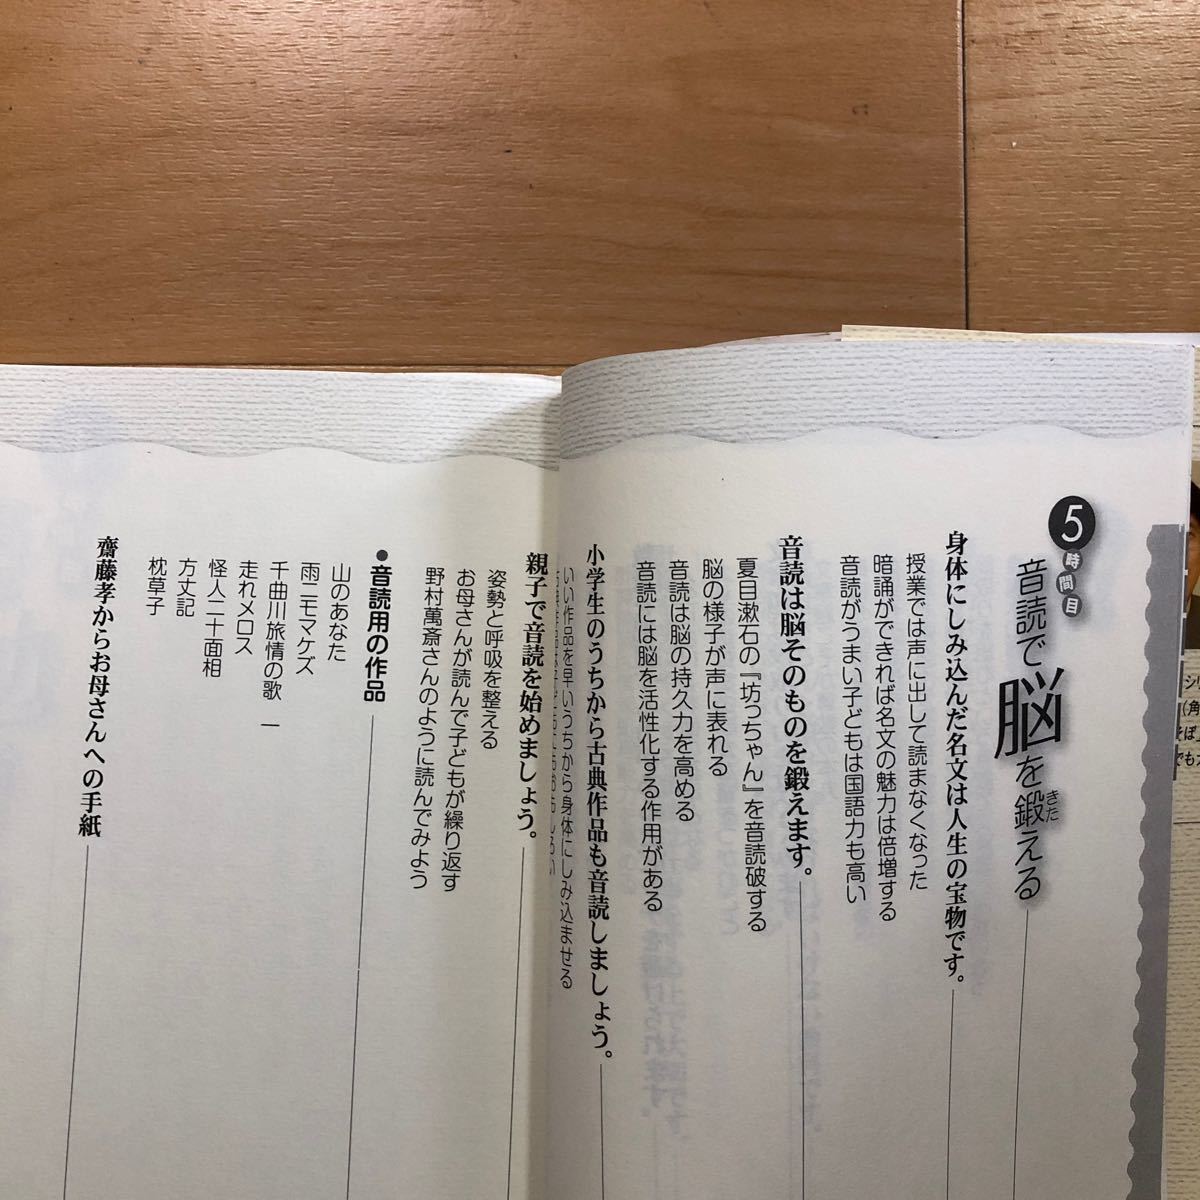 5時間目
音読で脳を鍛える
きた
身体にしみ込んだ名文は人生の宝物です。
授業では声に出して読まなくなった
暗誦ができれば名文の魅力は倍増する
音読がうまい子どもは国語力も高い
音読は脳そのものを鍛えます。
夏目漱石の『坊っちゃん』を音読破する
脳の様子が声に表れる
音読は脳の持久力を高める
音読には脳を活性化する作用がある
小学生のうちから古典作品も音読しましょう。
いい作品を早いうちから身体にしみ込ませる
親子で音読を始めましょう。
姿勢と呼吸を整える
お母さんが読んで子どもが繰り返す
野村萬斎さんのように読んでみよう
●音読用の作品
山のあなた
雨ニモマケズ
千曲川旅情の歌 一
走れメロス
怪人二十面相
方丈記
枕草子
齋藤孝からお母さんへの手紙